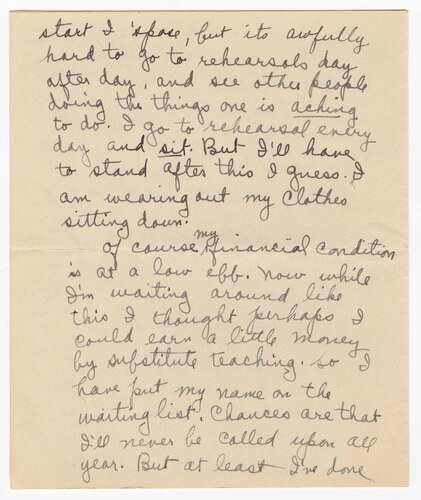 start I 'spose, but its awfully
hard to go to rehearsals day
after day, and see other people
doing the things one is aching
to do. I go to rehearsal every
day and sit. But I'll have
to stand after this I guess. I
am wearing out my clothes
sitting down.
Of course my financial condition
is at a low ebb. Now while
I'm waiting around like
this I thought perhaps I
could earn a little money
by substitute teaching. So I
have put my name on the
waiting list. Chances are that
I'll never be called upon all
year. But at least I've done